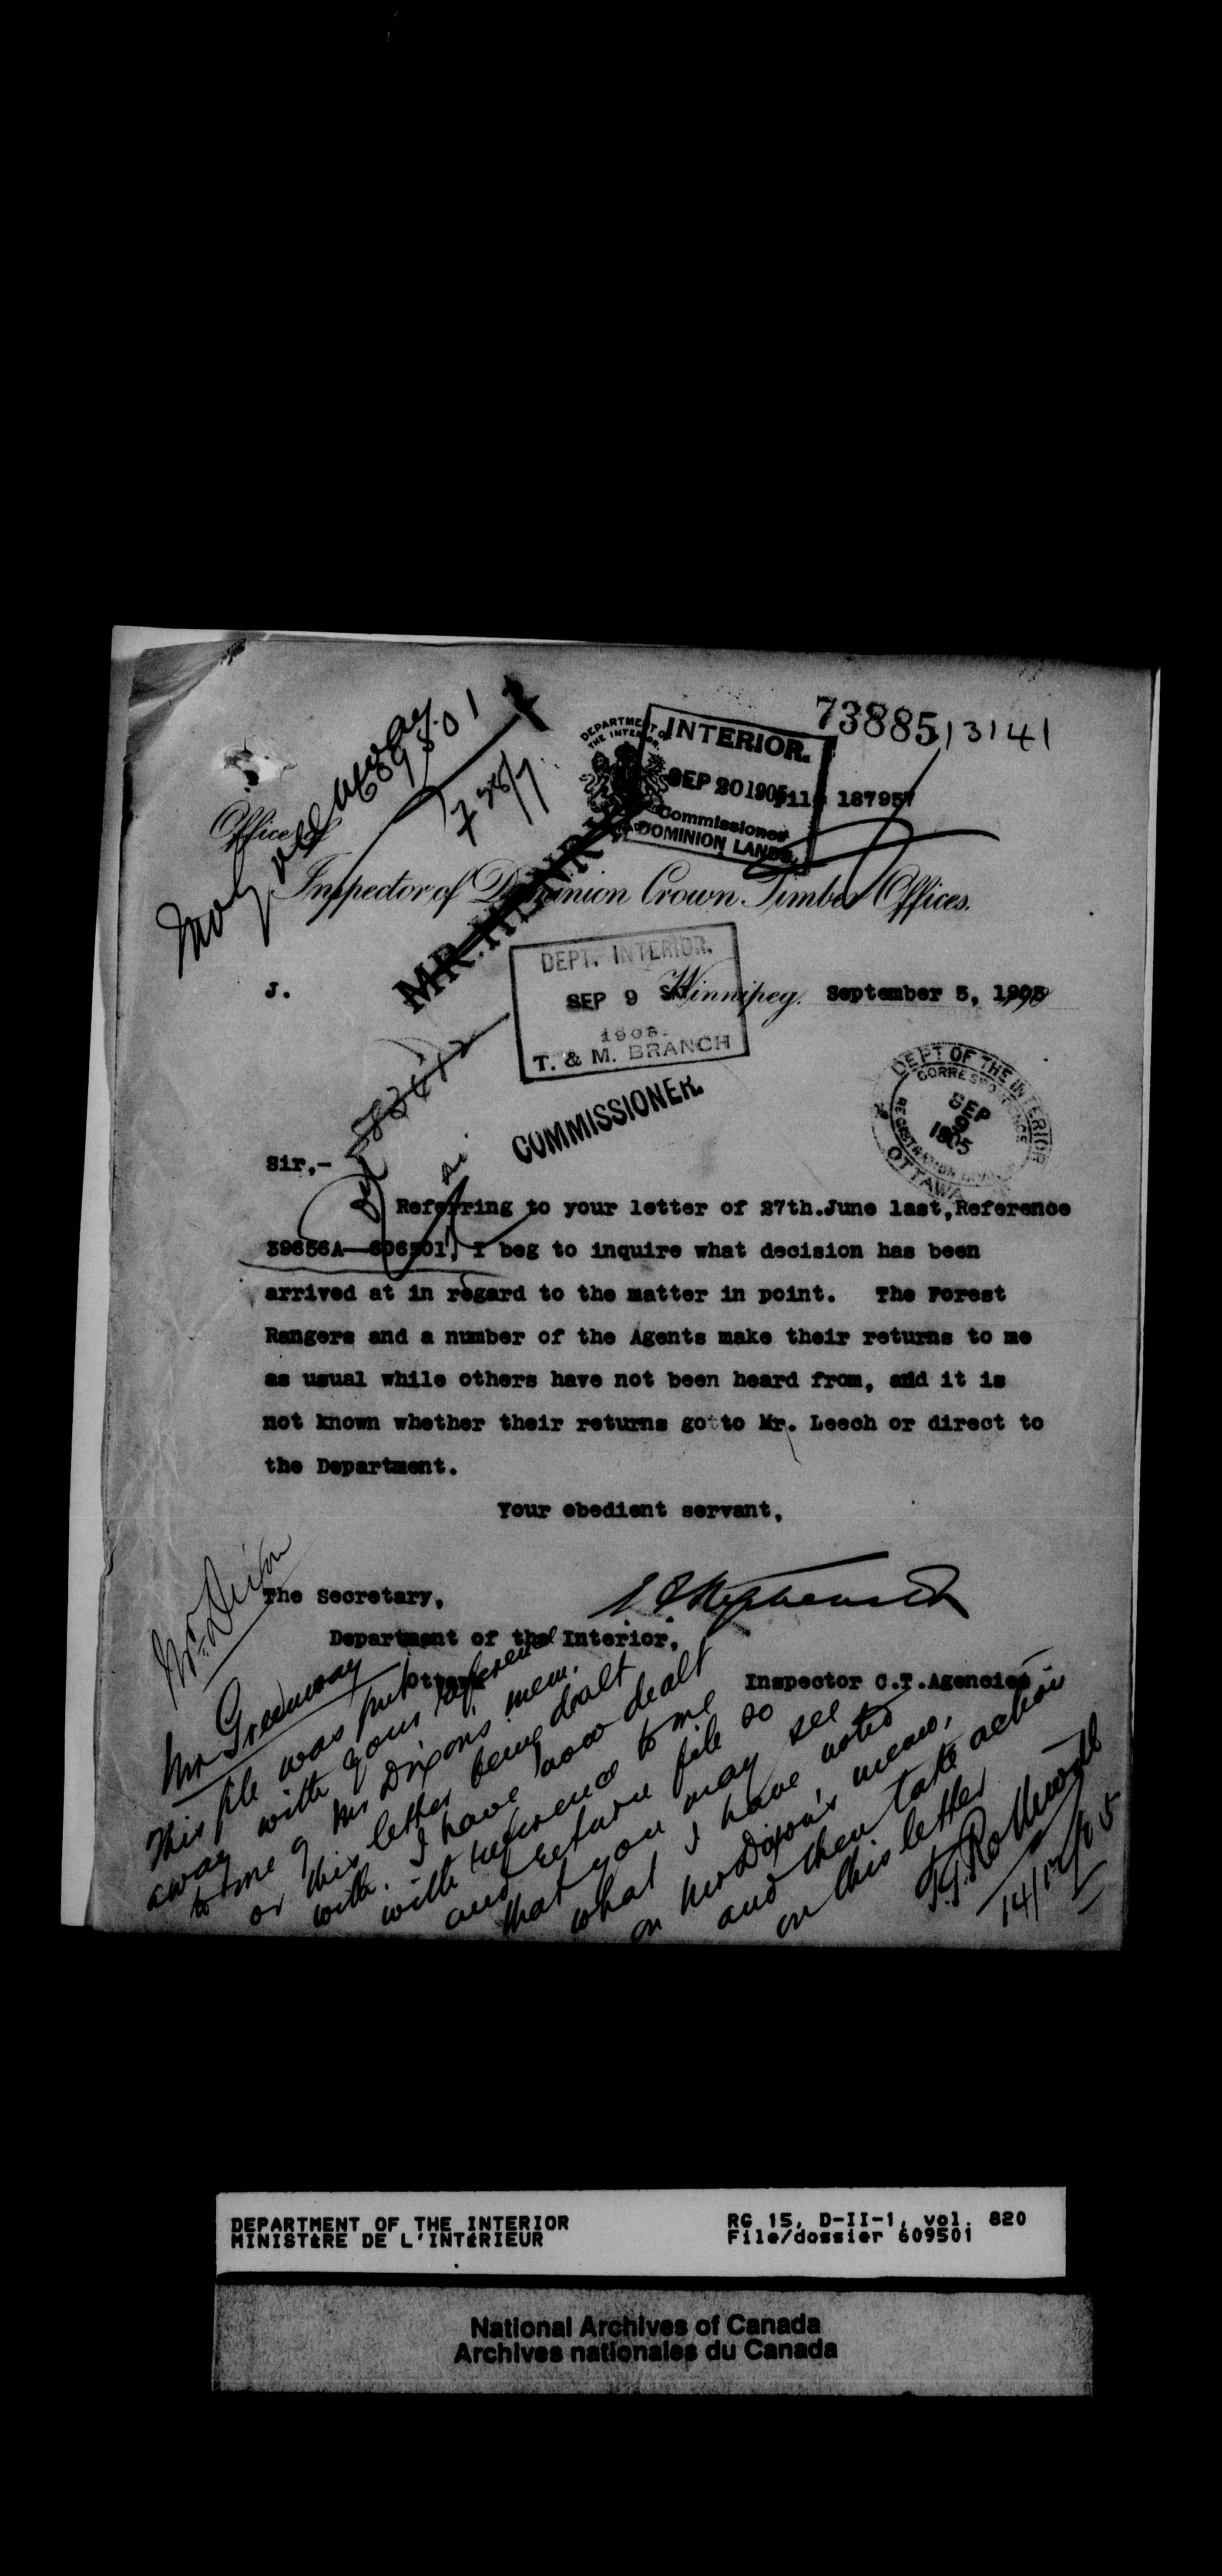 738851 3141
609501
738/7
DEPARTMENT OF
THE INTERIOR.
INTERIOR.
SEP 20 1905
Commissioner
DOMINION LANDS
File 187957
Office of
Inspector of Dominion Crown Timber Offices.
MR.
DEPT. INTERIOR.
SEP 9 SAT
1905.
T. & M. BRANCH
J.
Winnipeg. September 5, 1905
COMMISSIONER.
DEPT OF THE INTERIOR
CORRESPONDENCE
SEP
9
1905
REGISTRATION
OTTAWA
Sir,-
Referring to your letter of 27th.June last,Reference
39656A—606501, I beg to inquire what decision has been
arrived at in regard to the matter in point. The Forest
Rangers and a number of the Agents make their returns to me
as usual while others have not been heard from, and it is
not known whether their returns go to Mr. Leech or direct to
the Department.
Your obedient servant,
The Secretary,
Department of the Interior,
Ottawa
Inspector C.T.Agencies
Mr. Dixon
Mr Greenway
This file was put
away with your reference
to me of Mr Dixon's mem.
or this letter being dealt
with. I have now dealt
with reference to me
and return file so
that you may see
what I have noted
on Mr Dixon's memo,
and then take action
on this letter
14/12/05
DEPARTMENT OF THE INTERIOR
MINISTÈRE DE L'INTÉRIEUR
RG 15, D-II-1, vol. 820
File/dossier 609501
National Archives of Canada
Archives nationales du Canada